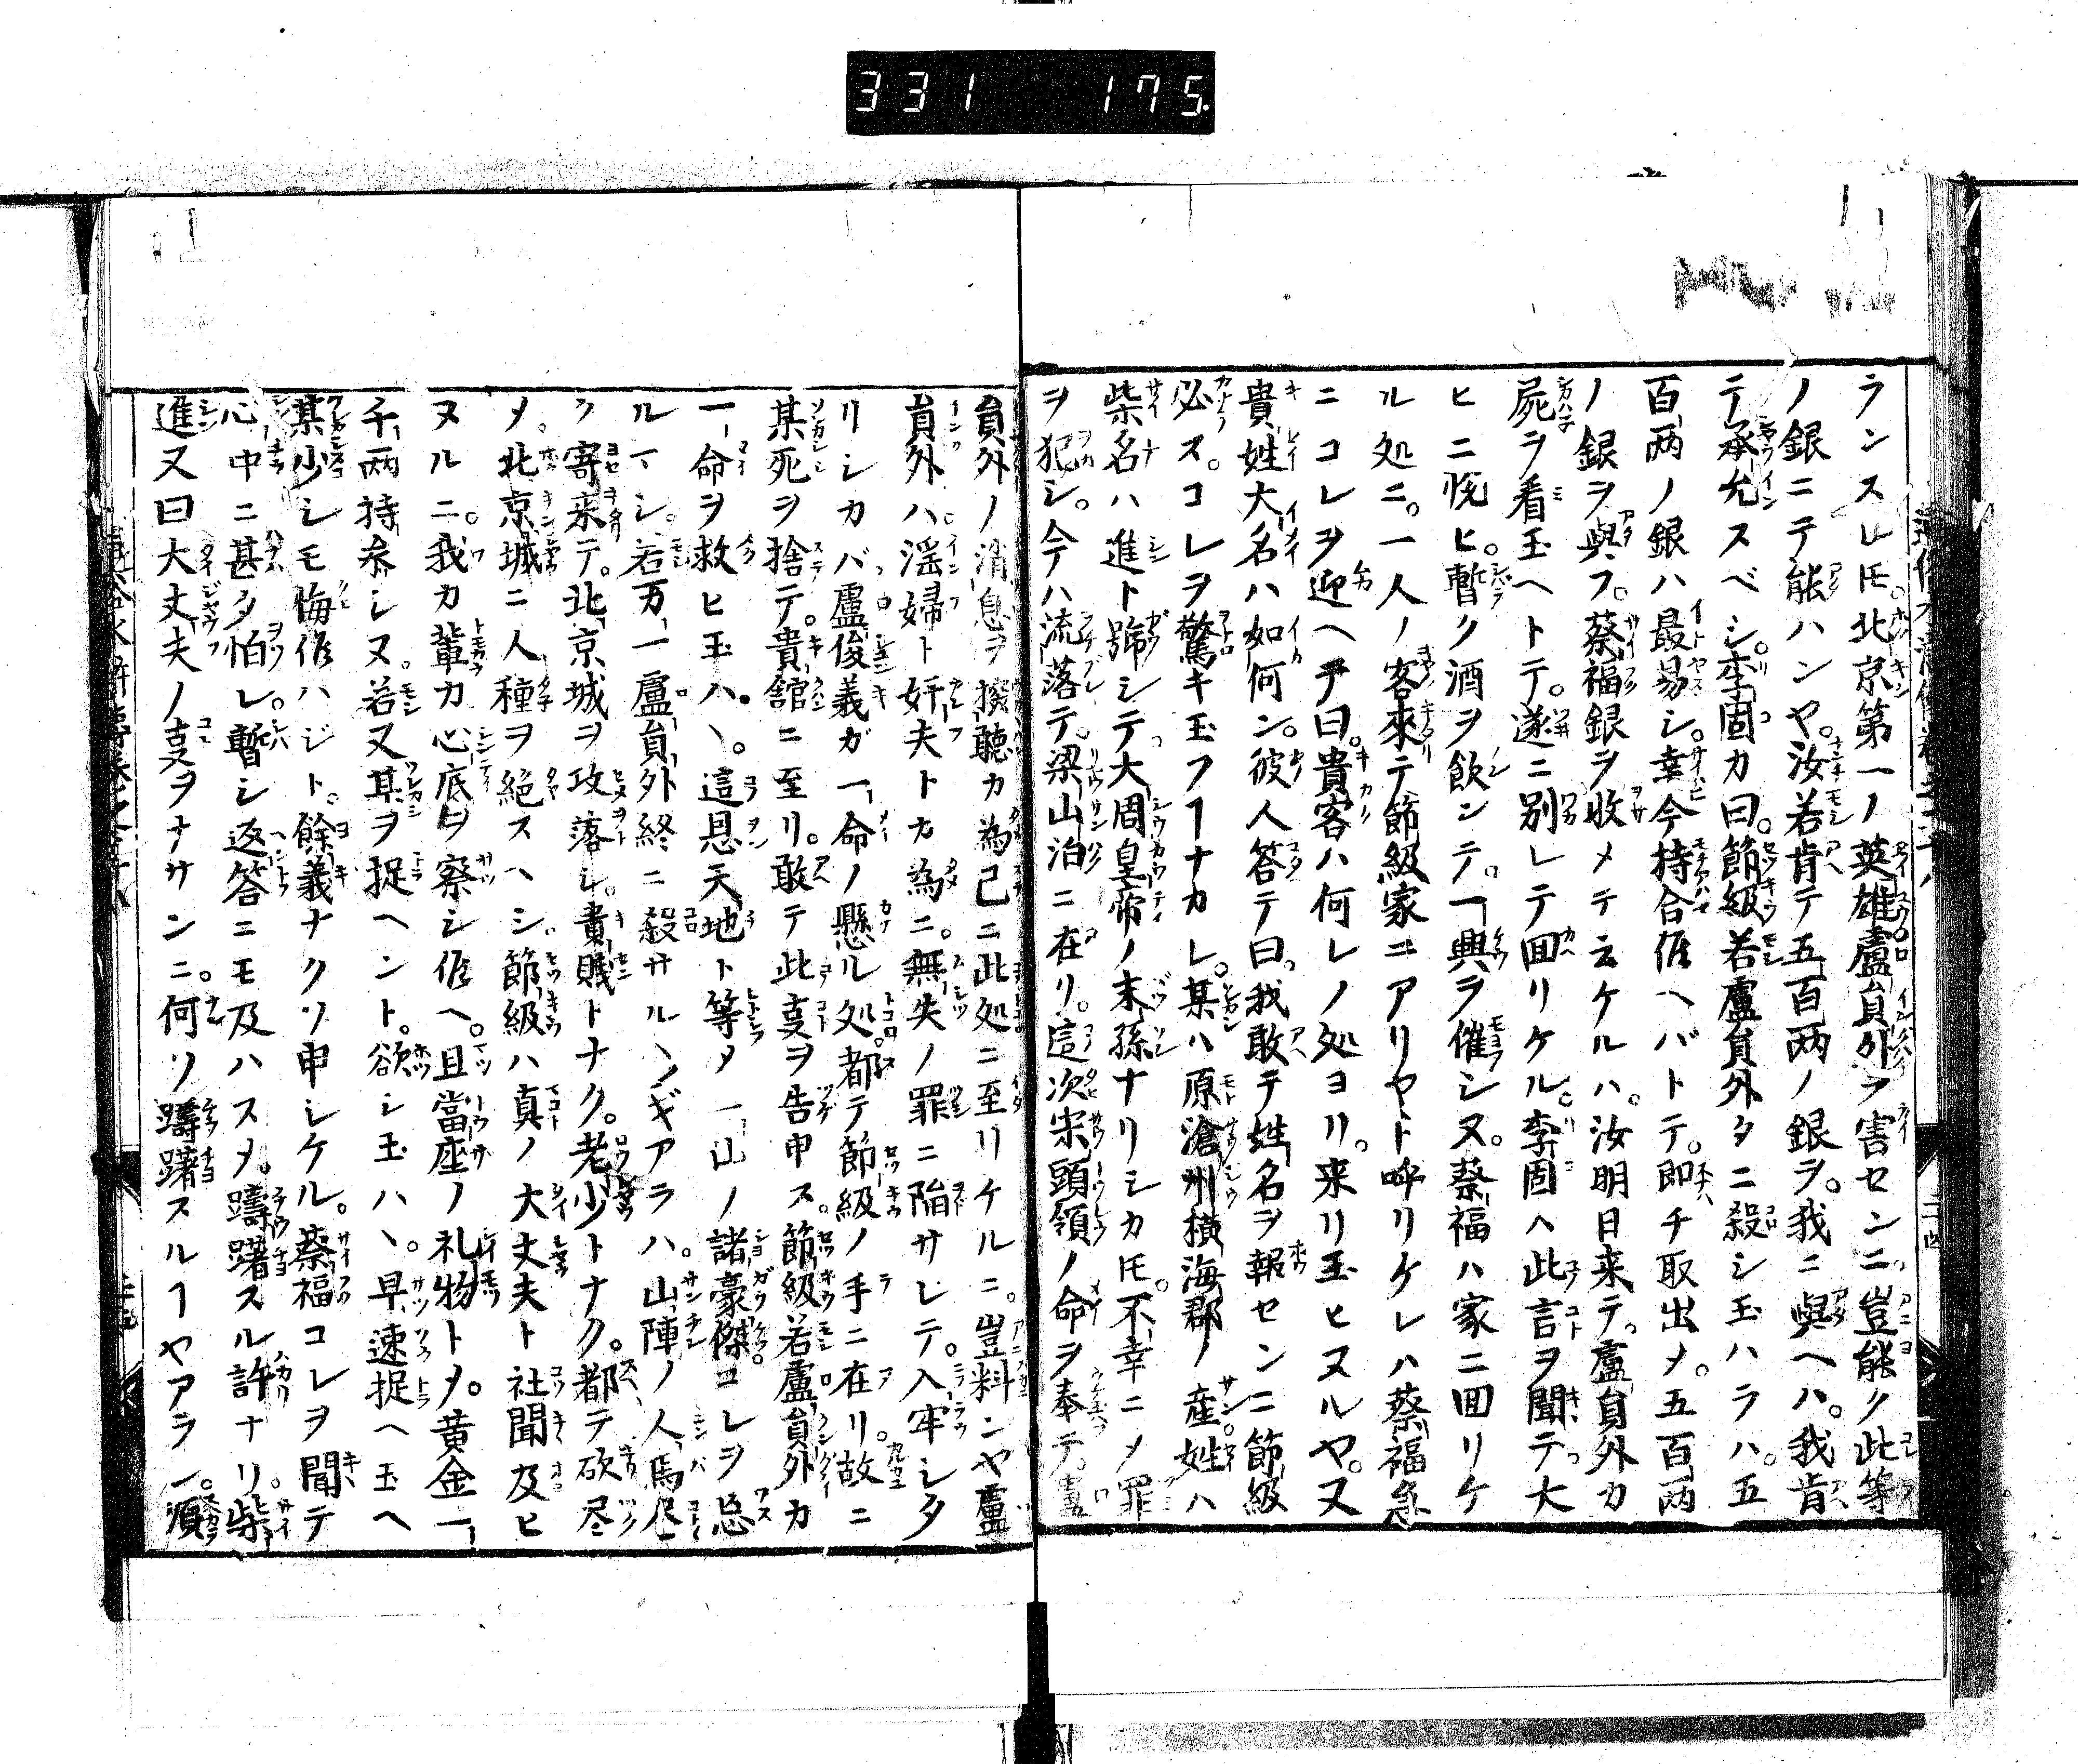 331 175.
ランスレ𪜈。北京第一ノ英雄盧貟外ヲ害センニ豈能ク此等
ノ銀ニテ能ハンヤ。汝若肯テ五百両ノ銀ヲ。我ニ與ヘハ。我肯
テ承允スベシ。李固カ曰。節級若盧貟外タニ殺シ玉ハラハ。五
百両ノ銀ハ最易シ。幸今持合侭ヘバトテ。即チ取出メ。五百両
ノ銀ヲ與フ。蔡福銀ヲ收メテ云ケルハ。汝明日来テ。盧貟外カ
屍ヲ看玉ヘトテ。遂ニ別レテ囬リケル。李固ハ此言ヲ聞テ大
ヒニ悦ヒ。暫ク酒ヲ飲ンテ。一興ヲ催シヌ。蔡福ハ家ニ囬リケ
ル処ニ。一人ノ客來テ節級家ニアリヤト呼リケレハ蔡福急
ニコレヲ迎ヘテ曰。貴客ハ何レノ処ヨリ。来リ玉ヒヌルヤ。又
貴姓大名ハ如何ン。彼人答テ曰。我敢テ姓名ヲ報センニ節級
必ス。コレヲ驚キ玉フヿナカレ。某ハ原滄州横海郡ノ産姓ハ
柴名ハ進ト號シテ大周皇帝ノ末孫ナリシカ𪜈。不幸ニメ罪
ヲ犯シ。今ハ流落テ。梁山泊ニ在リ。這次宋頭領ノ命ヲ奉テ。盧
貟外ノ消息ヲ探聴カ為已ニ此処ニ至リケルニ。豈料ンヤ盧
貟外ハ。淫婦ト奸夫トカ為ニ。無失ノ罪ニ陥サレテ。入牢シタ
リシカバ盧俊義ガ一命ノ懸ル処。都テ節級ノ手ニ在リ。故ニ
某死ヲ捨テ。貴舘ニ至リ。敢テ此叓ヲ告申ス。節級若盧貟外カ
一命ヲ救ヒ玉ハヽ。這恩天地ト等メ一山ノ諸豪傑コレヲ忘
ルヿシ。若万一盧貟外終ニ殺サルヽギアラハ。山陣ノ人馬尽
ク寄来テ。北京城ヲ攻落シ。貴賎トナク。老少トナク。都テ砍尽
メ。北京城ニ人種ヲ絶スヘシ。節級ハ真ノ大丈夫ト社聞及ヒ
ヌルニ。我カ輩カ心底ヲ察シ侭ヘ。且當座ノ礼物トメ。黄金一
千両持参シヌ。若又某ヲ捉ヘント。欲シ玉ハヽ。早速捉ヘ玉ヘ
某少シモ悔侭ハジト。餘義ナクソ申シケル。蔡福コレヲ聞テ
心中ニ甚タ怕レ。暫シ返答ニモ及ハスメ。躊躇スル許ナリ。柴
進又曰大丈夫ノ叓ヲナサンニ。何ソ躊躇スルヿヤアラン。須